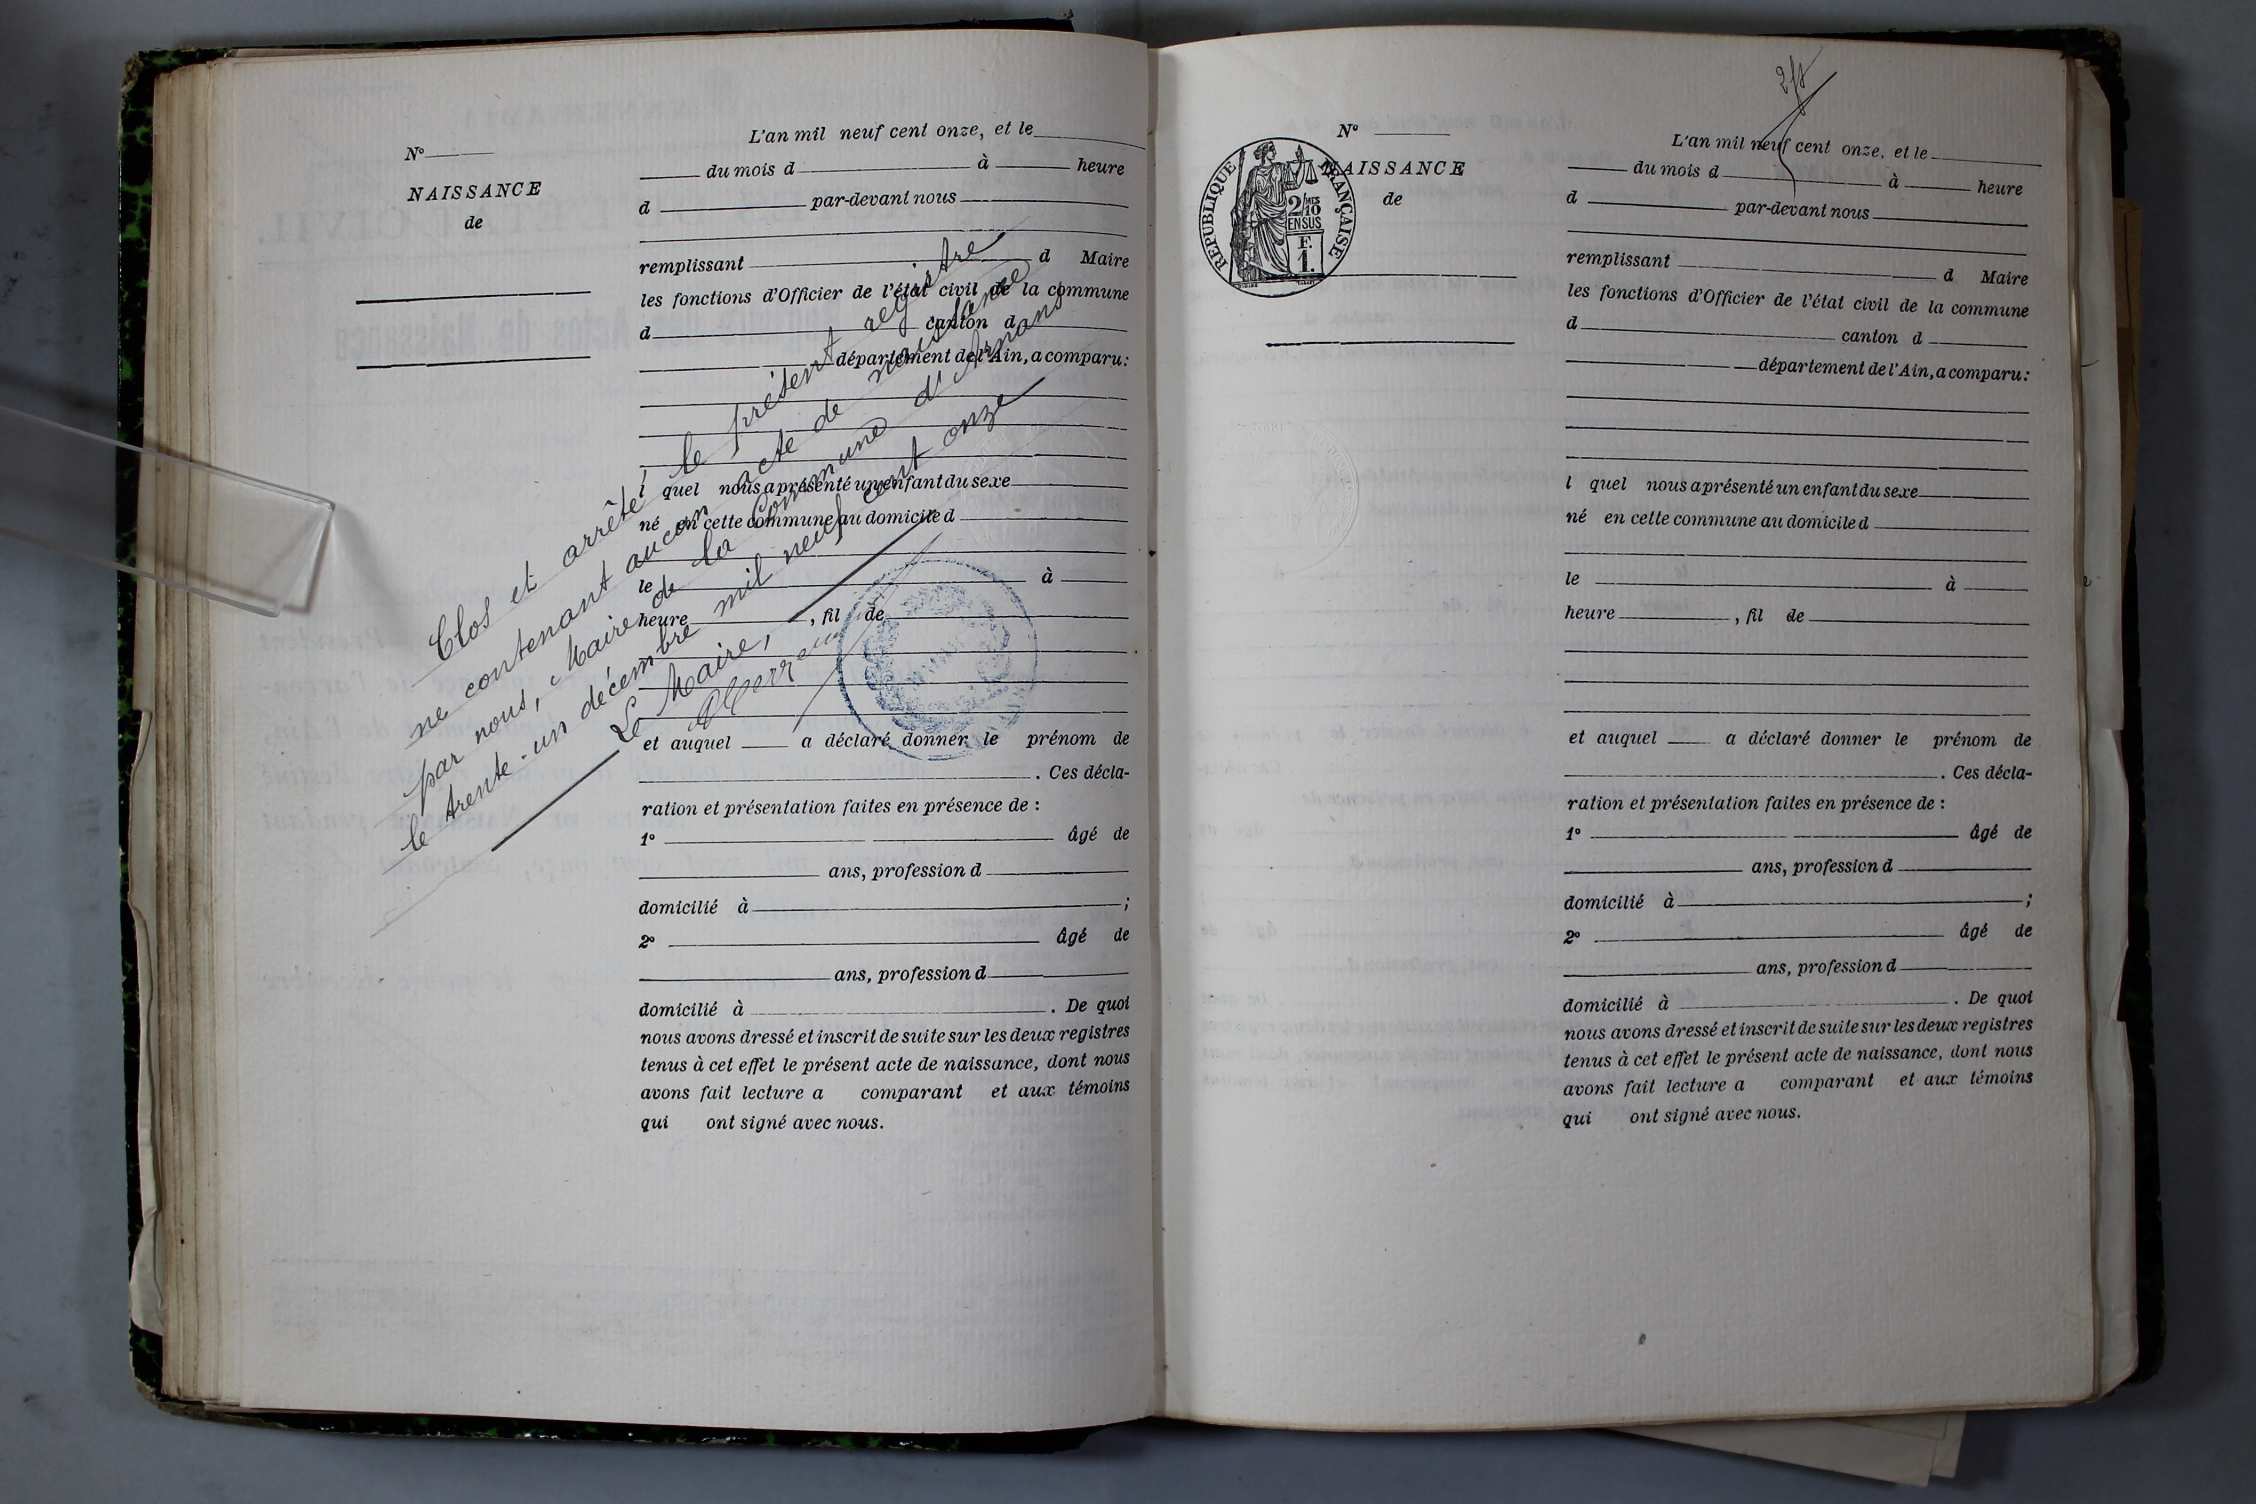 N°
NAISSANCE
de
L'an mil neuf cent onze, et le
du mois d à heure
d par-devant nous
remplissant d Maire
les fonctions d'Officier de l'état civil de la commune
d canton d
département de l'Ain, a comparu:
l quel nous a présenté un enfant du sexe
né en cette commune au domicile d
le à
heure , fil de
et auquel a déclaré donner le prénom de
. Ces décla-
ration et présentation faites en présence de :
1° âgé de
ans, profession d
domicilié à ;
2° âgé de
ans, profession d
domicilié à . De quoi
nous avons dressé et inscrit de suite sur les deux registres
tenus à cet effet le présent acte de naissance, dont nous
avons fait lecture a comparant et aux témoins
qui ont signé avec nous.
Clos et arrêté le présent registre
ne contenant aucun acte de naissance
par nous, Maire de la Commune d'Arnans
le trente-un décembre mil neuf cent onze
Le Maire,
N°
NAISSANCE
de
REPUBLIQUE FRANÇAISE
2/10
EN SUS
F.
1.
L'an mil neuf cent onze, et le
du mois d à heure
d par-devant nous
remplissant d Maire
les fonctions d'Officier de l'état civil de la commune
d canton d
département de l'Ain, a comparu:
l quel nous a présenté un enfant du sexe
né en cette commune au domicile d
le à
heure , fil de
et auquel a déclaré donner le prénom de
. Ces décla-
ration et présentation faites en présence de :
1° âgé de
ans, profession d
domicilié à ;
2° âgé de
ans, profession d
domicilié à . De quoi
nous avons dressé et inscrit de suite sur les deux registres
tenus à cet effet le présent acte de naissance, dont nous
avons fait lecture a comparant et aux témoins
qui ont signé avec nous.